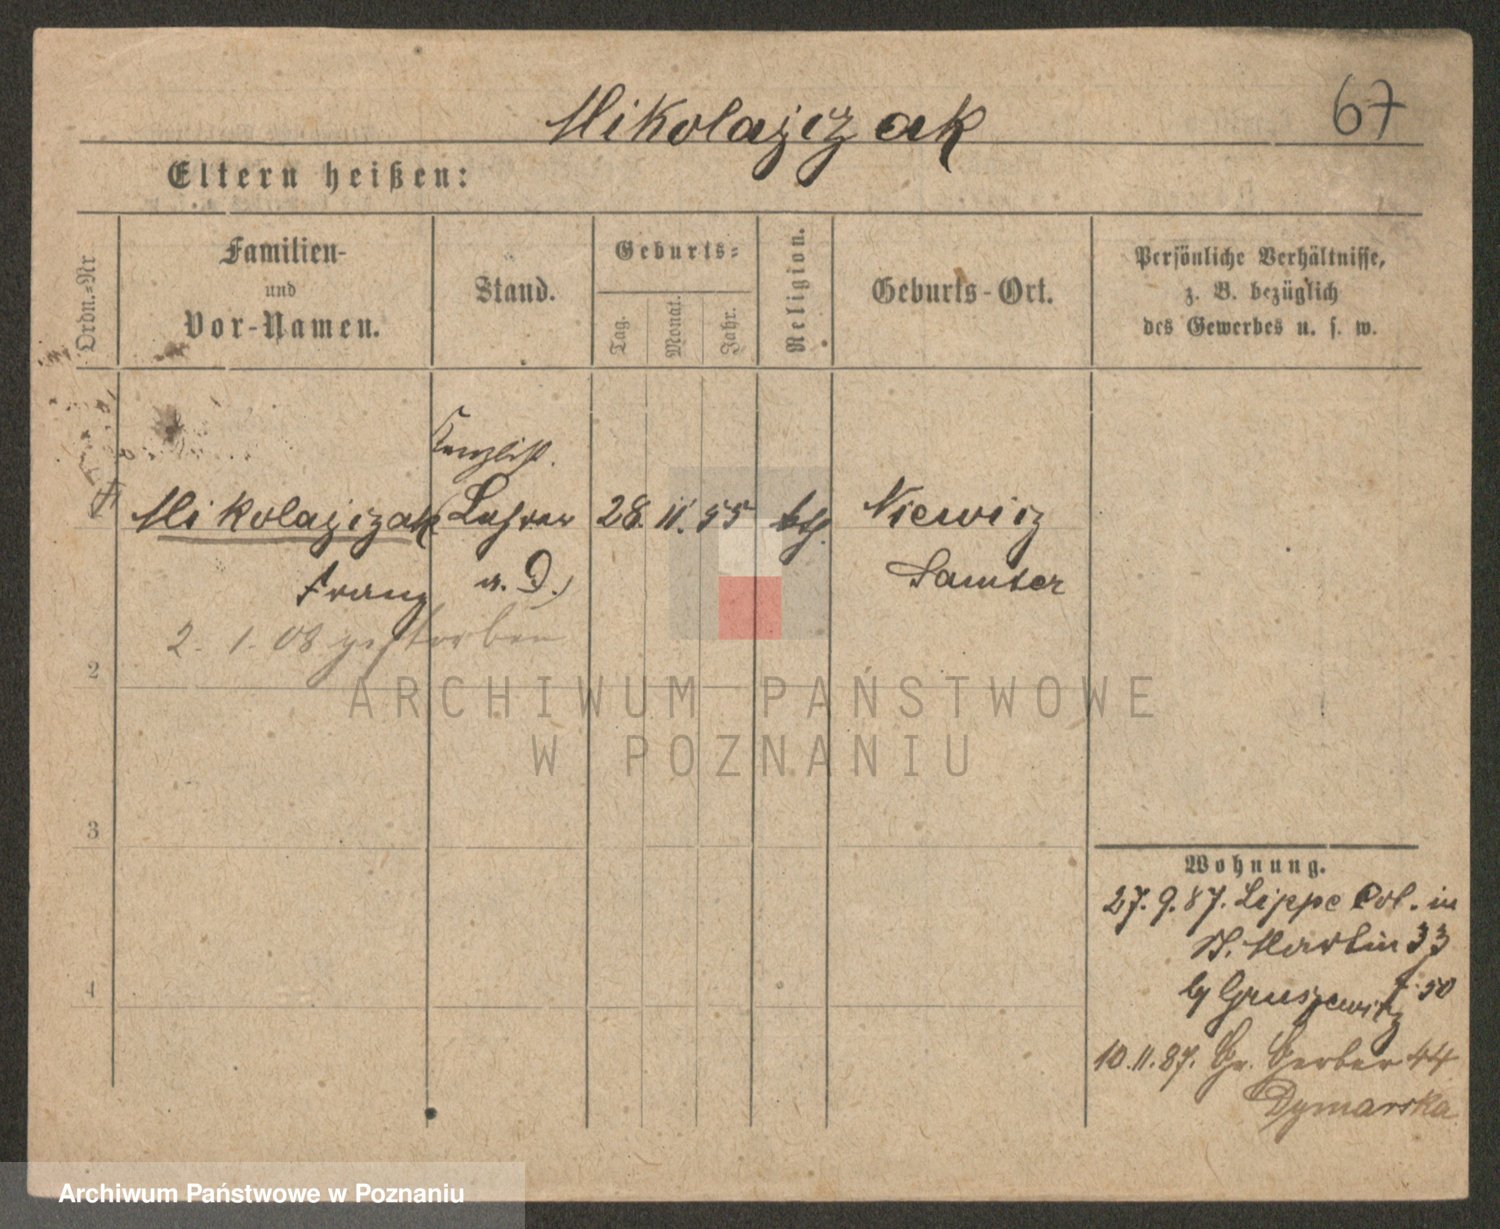 Mikolajczak
67
Eltern heißen:
Ordn.=Nr
Familien-
und
Vor-Namen.
Stand.
Geburts=
Tag.
Monat.
Jahr.
Religion.
Geburts-Ort.
Persönliche Verhältnisse,
z. B. bezüglich
des Gewerbes u. s. w.
Kanzlist.
Mikolajczak (Lehrer 28. 11. 55 kth. Niewicz
Franz a. D.) Samter
2. 1. 08 gestorben
2
ARCHIWUM PAŃSTWOWE
W POZNANIU
3
Wohnung.
27. 9. 87. Lippe Det. in
St. Martin 33
4
by Gruszewicz 50
10. 11. 87. Gr. Gerber 44
Dymarska
Archiwum Państwowe w Poznaniu